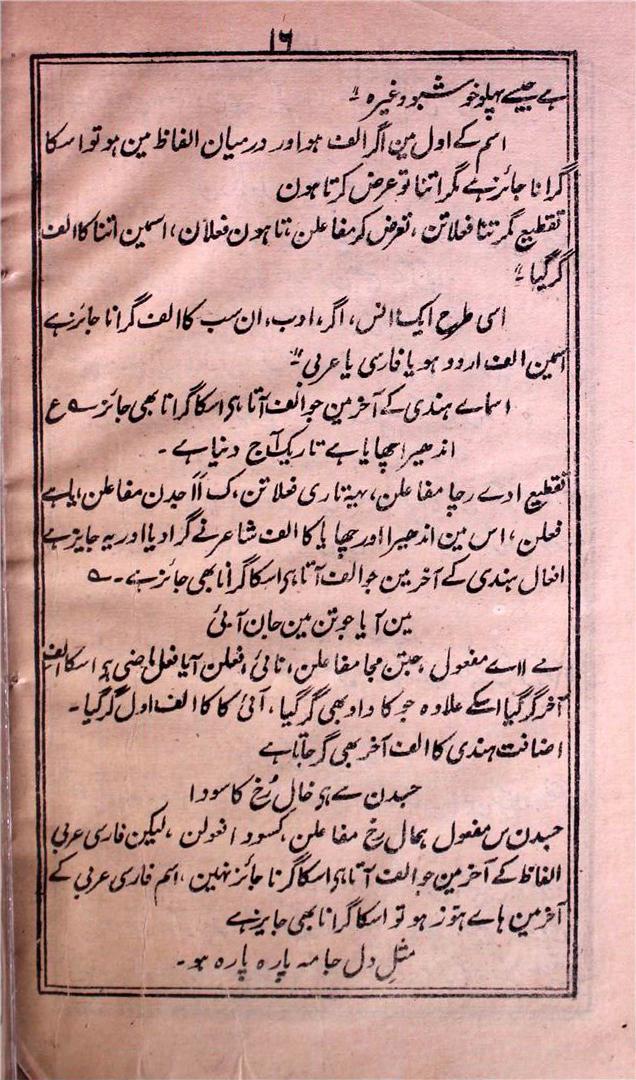 ۱۶
ہے جیسے پہلو خوشبو وغیرہ ۔"
اسم کے اول مین اگر الف ہو اور درمیان الفاظ مین ہو تو اسکا
گرانا جائز ہے مگر اتنا تو عرض کرتا ہون
تقطیع مگر تنا فعلاتن، تعرض کر مفاعلن، تا ہون فعلان، اسمین اتنا کا الف
گر گیا۔"
اسی طرح ایک، اس، اگر، ادب، ان سب کا الف گرانا جائز ہے
اسمین الف اردو ہو یا فارسی یا عربی۔"
اسماے ہندی کے آخر مین جو الف آتا ہی اسکا گرانا بھی جائز ہے ع
اندھیرا چھایا ہے تاریک آج دنیا ہے ۔
تقطیع ادے رچا مفاعلن، یہ تاری فعلاتن، ک اَا جدن مفاعلن، یا ہے
فعلن، اس مین اندھیرا اور چھایا کا الف شاعر نے گرا دیا اور یہ جایز ہے
افعال ہندی کے آخر مین جو الف آتا ہی اسکا گرانا بھی جائز ہے۔ ے
مین آیا جو تن مین جان آئی
مے ااے مفعول، جتن مجا مفاعلن، نائی، فعلن آیا فعل ماضی ہی اسکا الف
آخر گر گیا اسکے علاوہ جو کا داو بھی گر گیا، آئی کا کا الف اول گر گیا۔
اضافت ہندی کا الف آخر بھی گر جاتا ہے
جبدن سے ہی خال رُخ کا سودا
جبدن س مفعول ہمال رخ مفاعلن، کسودا فعولن، لیکن فارسی عربی
الفاظ کے آخر مین جو الف آتا ہی اسکا گرنا جائز نہین، اسم فارسی عربی کے
آخر مین ہاے ہوّز ہو تو اسکا گرانا بھی جایز ہے
مثلِ دل جامہ پارہ پارہ ہو۔